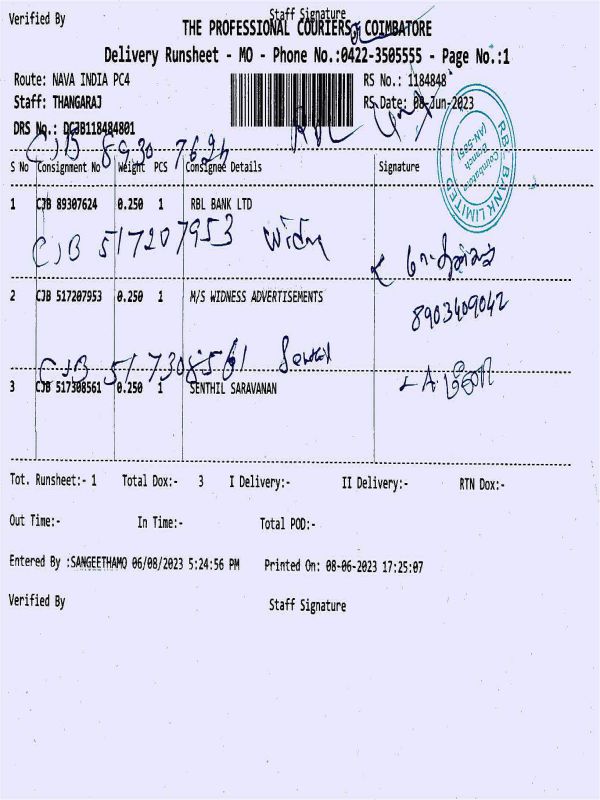 Verified By Staff Signature
THE PROFESSIONAL COURIERS, COIMBATORE
Delivery Runsheet - MO - Phone No.:0422-3505555 - Page No.:1
Route: NAVA INDIA PC4 RS No.: 1184848
Staff: THANGARAJ RS Date: 08-Jun-2023
DRS No.: DCJB118484801
CJB 89307624
S No Consignment No Weight PCS Consignee Details Signature
RBL BANK LIMITED
Coimbatore Branch
1 CJB 89307624 0.250 1 RBL BANK LTD
CJB 517207953
2 CJB 517207953 0.250 1 M/S WIDNESS ADVERTISEMENTS
8903409042
CJB 517308561
3 CJB 517308561 0.250 1 SENTHIL SARAVANAN
Tot. Runsheet:- 1 Total Dox:- 3 I Delivery:- II Delivery:- RTN Dox:-
Out Time:- In Time:- Total POD:-
Entered By :SANGEETHAMO 06/08/2023 5:24:56 PM Printed On: 08-06-2023 17:25:07
Verified By Staff Signature